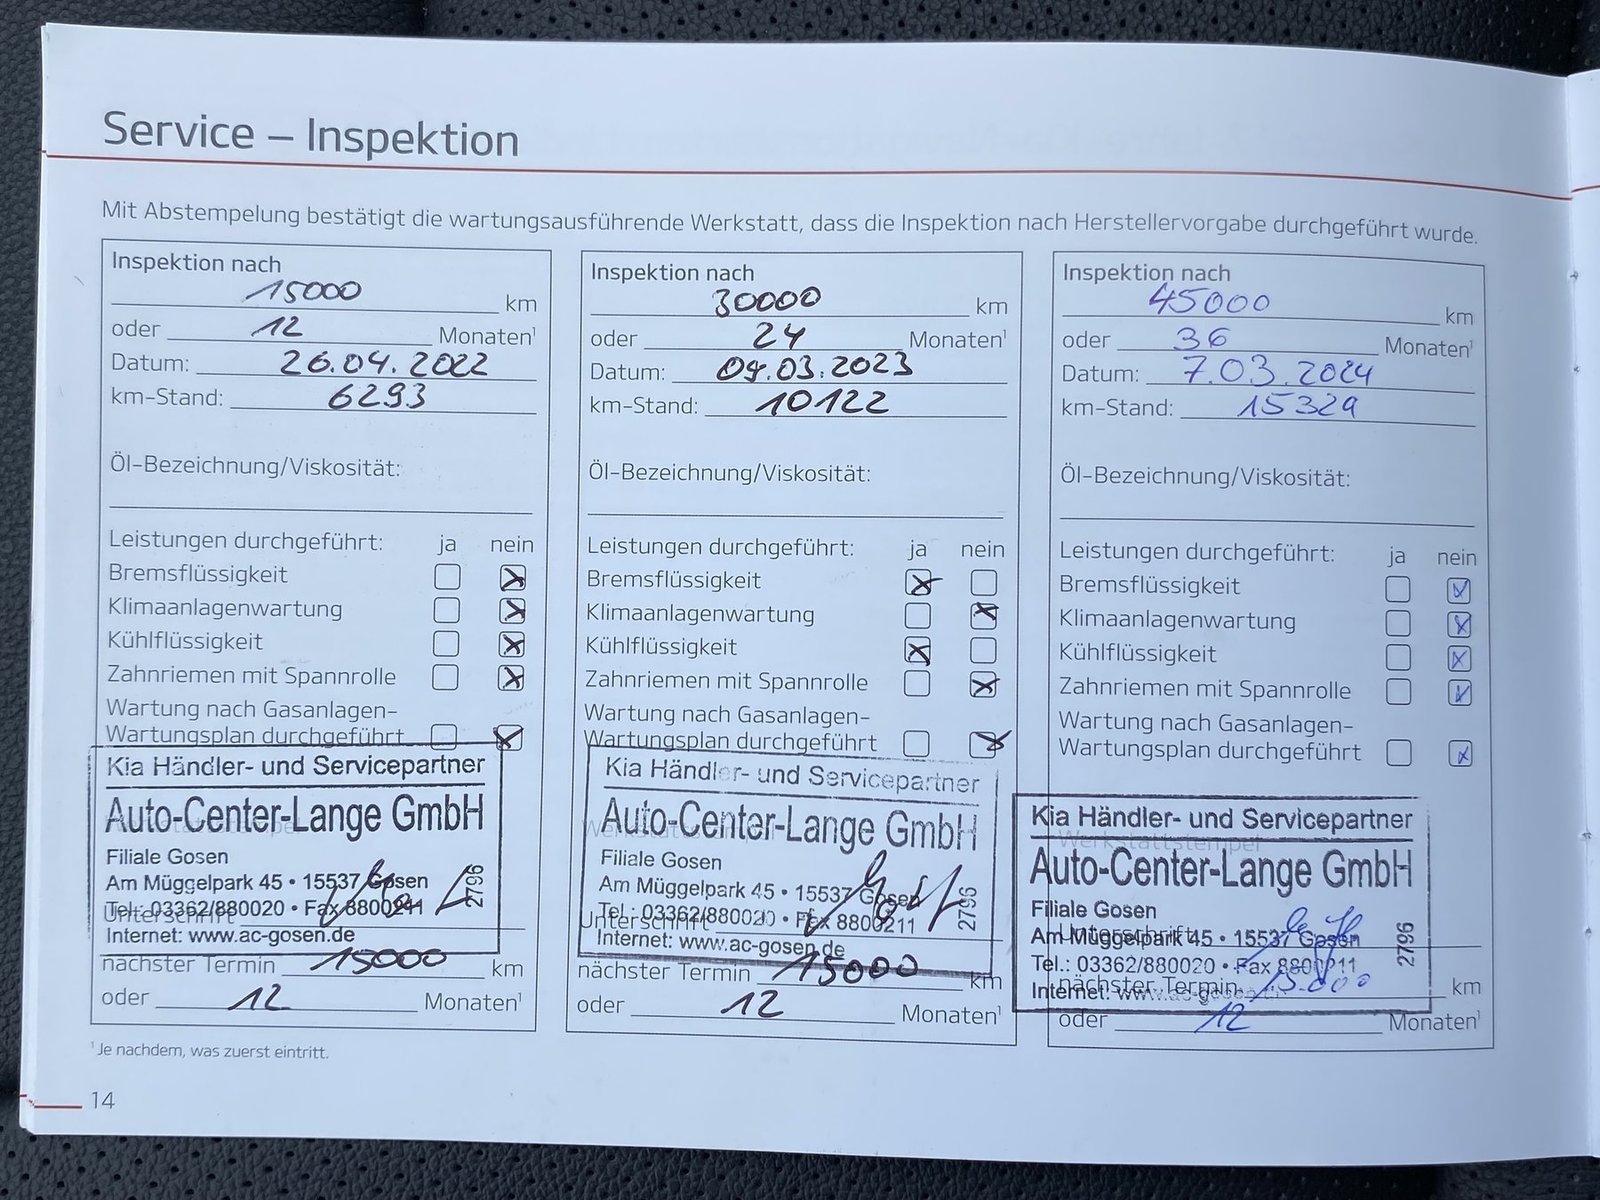 Service – Inspektion
Mit Abstempelung bestätigt die wartungsausführende Werkstatt, dass die Inspektion nach Herstellervorgabe durchgeführt wurde.
Inspektion nach
15000 km
oder 12 Monaten¹
Datum: 26.04.2022
km-Stand: 6293
Öl-Bezeichnung/Viskosität:
Leistungen durchgeführt: ja nein
Bremsflüssigkeit
Klimaanlagenwartung
Kühlflüssigkeit
Zahnriemen mit Spannrolle
Wartung nach Gasanlagen-
Wartungsplan durchgeführt
Kia Händler- und Servicepartner
Auto-Center-Lange GmbH
Filiale Gosen
Am Müggelpark 45 • 15537 Gosen
Tel.: 03362/880020 • Fax 8800211
Internet: www.ac-gosen.de
2796
Unterschrift
nächster Termin 15000 km
oder 12 Monaten¹
Inspektion nach
30000 km
oder 24 Monaten¹
Datum: 09.03.2023
km-Stand: 10122
Öl-Bezeichnung/Viskosität:
Leistungen durchgeführt: ja nein
Bremsflüssigkeit
Klimaanlagenwartung
Kühlflüssigkeit
Zahnriemen mit Spannrolle
Wartung nach Gasanlagen-
Wartungsplan durchgeführt
Kia Händler- und Servicepartner
Auto-Center-Lange GmbH
Filiale Gosen
Am Müggelpark 45 • 15537 Gosen
Tel.: 03362/880020 • Fax 8800211
Internet: www.ac-gosen.de
2796
Unterschrift
nächster Termin 15000 km
oder 12 Monaten¹
Inspektion nach
45000 km
oder 36 Monaten¹
Datum: 7.03.2024
km-Stand: 15329
Öl-Bezeichnung/Viskosität:
Leistungen durchgeführt: ja nein
Bremsflüssigkeit
Klimaanlagenwartung
Kühlflüssigkeit
Zahnriemen mit Spannrolle
Wartung nach Gasanlagen-
Wartungsplan durchgeführt
Kia Händler- und Servicepartner
Werkstattstempel
Auto-Center-Lange GmbH
Filiale Gosen
Am Müggelpark 45 • 15537 Gosen
Tel.: 03362/880020 • Fax 8800211
Internet: www.ac-gosen.de
2796
Unterschrift
nächster Termin 15.000 km
oder 12 Monaten¹
¹ Je nachdem, was zuerst eintritt.
14